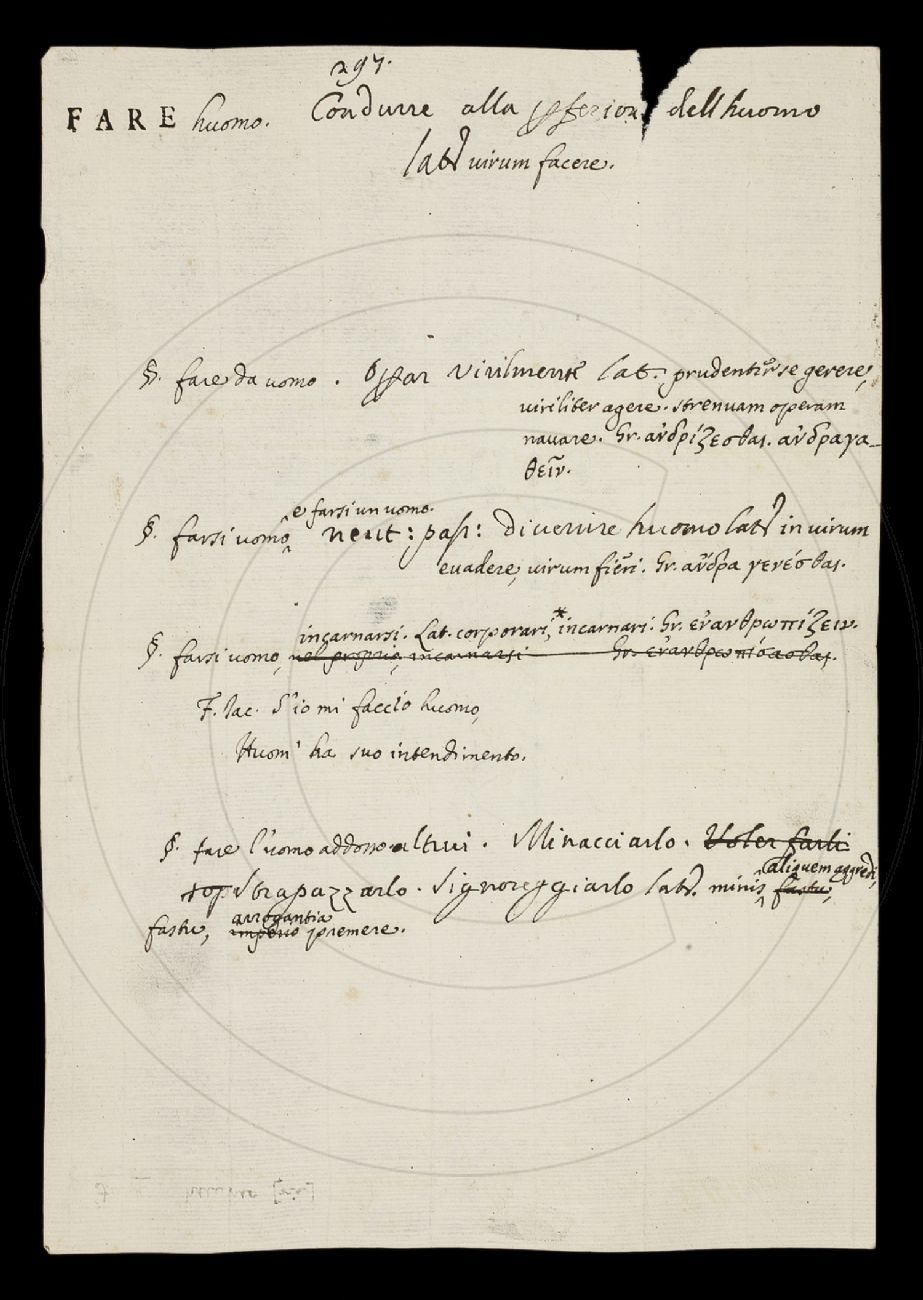 297.
FARE huomo. Condurre alla p̱fezion dell huomo
lat. virum facere.
§. fare da uomo. Op̱ar virilmente lat. prudenter se gerere,
viriliter agere. strenuam operam
navare. Gr. ἀνδρίζεσθαι. ἀνδραγα-
θεῖν.
e farsi un uomo.
§. farsi uomo neut: pass: divenire huomo lat. in virum
evadere, virum fieri. Gr. ἄνδρα γενέσθαι.
incarnarsi. Lat. corporari,* incarnari. Gr. ἐνανθρωπίζειν.
§. farsi uomo, nel proprio, incarnarsi Gr. ἐνανθρωπίσασθαι.
F. Iac. S'io mi faccio huomo,
Huom' ha suo intendimento.
§. fare l'uomo addosso altrui. Minacciarlo. Voler farli
aliquem aggredi,
sop Strapazzarlo. Signoreggiarlo lat. minis, fastu,
arrogantia
fastu, imperio premere.